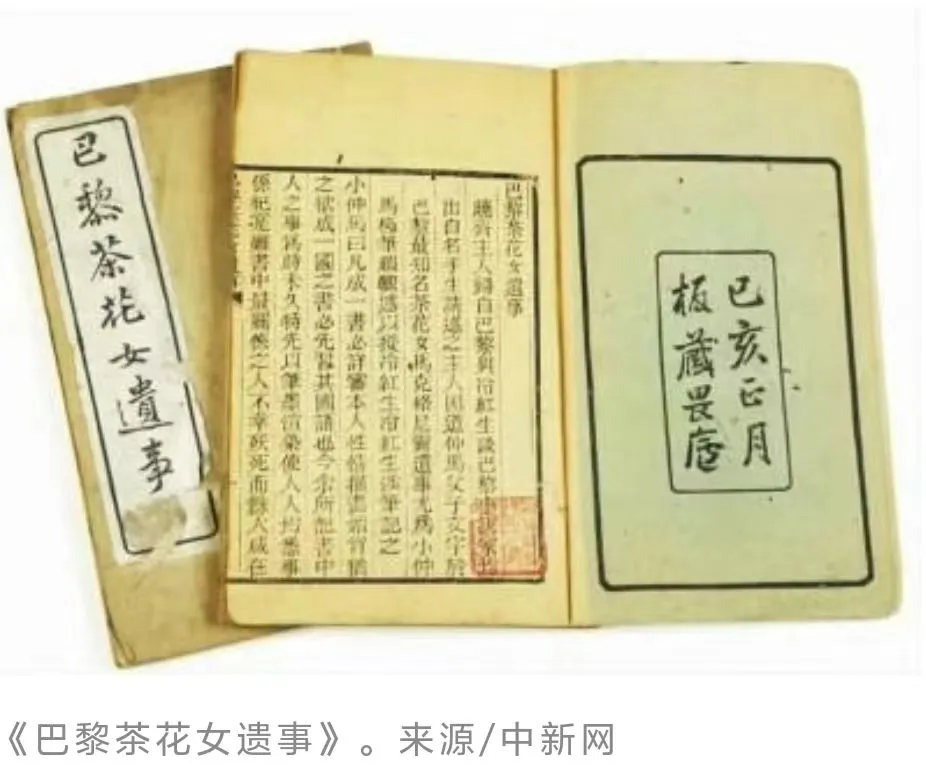 巴黎茶花女遺事
己亥正月
板藏畏廬
巴黎茶花女遺事
曉齋主人歸自巴黎與冷紅生談巴黎小說家均
出自名手生請述之主人因道仲馬父子文字於
巴黎最知名茶花女馬克格尼爾遺事尤爲小仲
馬極筆暇輒述以授冷紅生冷紅生涉筆記之
小仲馬曰凡成一書必詳審本人性情描畫始肖猶
之欲成一國之書必先習其國語也今余所記書中
人之事爲時未久特先以筆墨渲染使人人均悉事
係紀實雖書中最關係之人不幸夭死而餘人咸在
《巴黎茶花女遗事》。来源/中新网